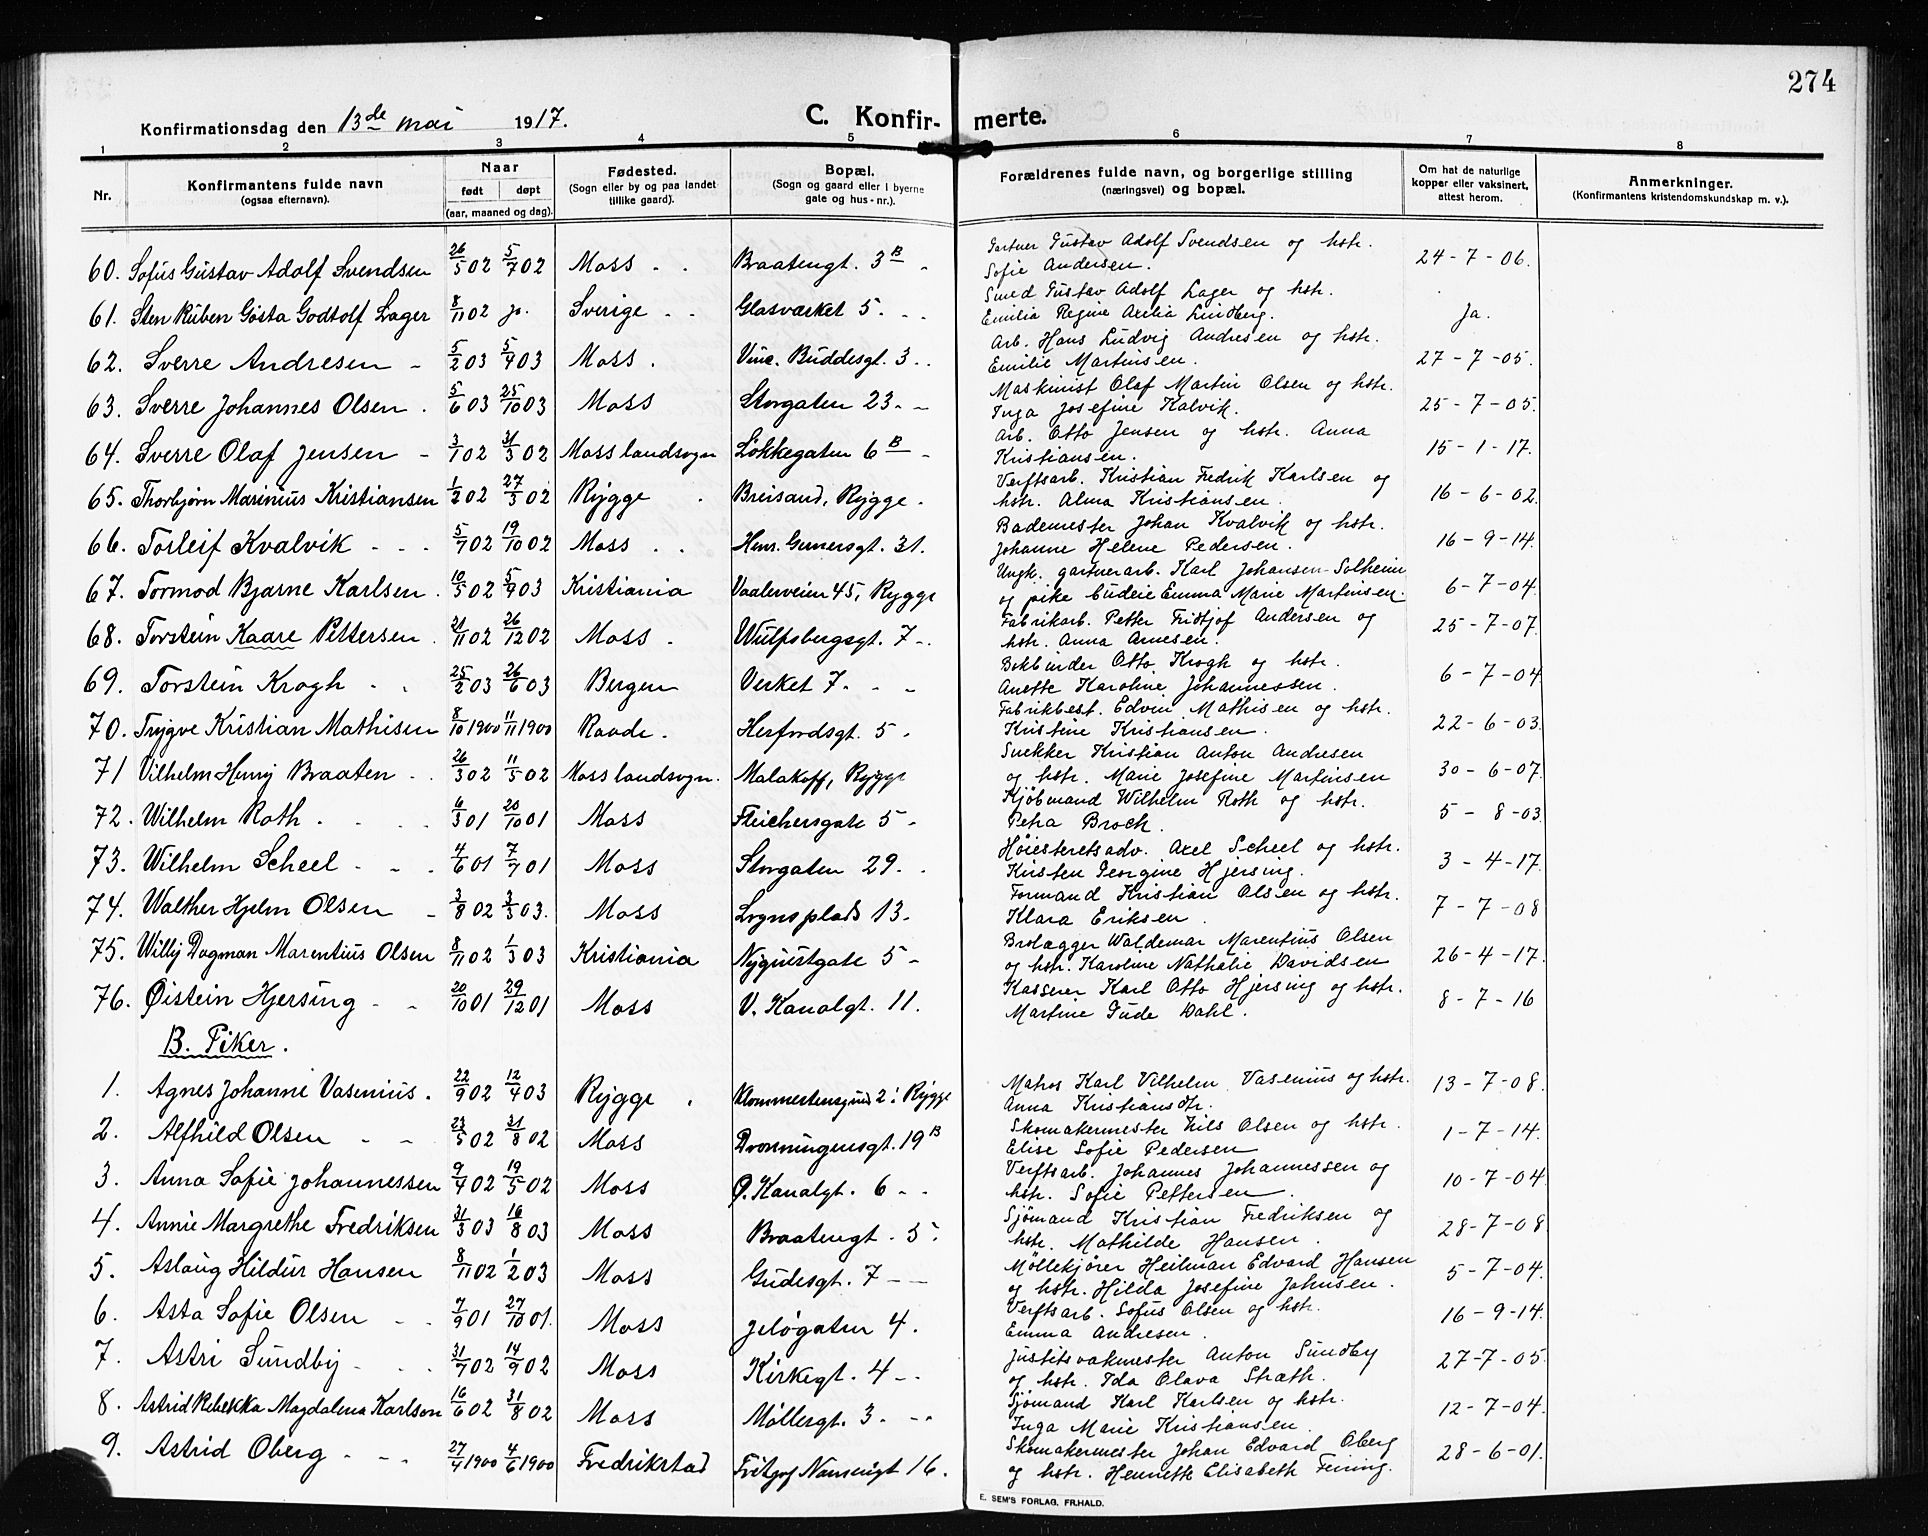 274
Konfirmationsdag den 13de mai 1917. C. Konfirmerte.
1 2 3 4 5 6 7 8
Nr. Konfirmantens fulde navn (ogsaa efternavn). Naar født døpt (aar, maaned og dag). Fødested. (Sogn eller by og paa landet tillike gaard). Bopæl. (Sogn og gaard eller i byerne gate og hus-nr.). Forældrenes fulde navn, og borgerlige stilling (næringsvei) og bopæl. Om hat de naturlige kopper eller vaksinert, attest herom. Anmerkninger. (Konfirmantens kristendomskundskap m. v.).
60. Sofus Gustav Adolf Svendsen 26/5 02 5/7 02 Moss Braatengt. 3B Gartner Gustav Adolf Svendsen og hstr. Sofie Andersen. 24-7-06.
61. Sten Ruben Gøsta Godtolf Lager 8/11 02 ja. Sverige Glasværket 5. Smed Gustav Adolf Lager og hstr. Emilia Regine Axelia Lindberg. Ja.
62. Sverre Andresen 5/2 03 5/4 03 Moss. Vinc. Buddesgt. 3 Arb. Hans Ludvig Andresen og hstr. Emilie Martinsen. 27-7-05.
63. Sverre Johannes Olsen. 5/6 03 25/10 03 Moss Storgaten 23. Maskinist Olaf Martin Olsen og hstr. Inga Josefine Kalvik. 25-7-05.
64. Sverre Olaf Jensen 3/1 02 31/3 02 Moss landsogn Løkkegaten 6B Arb. Otto Jensen og hstr. Anna Kristiansen. 15-1-17.
65. Thorbjørn Marinius Kristiansen 1/2 02 27/3 02 Rygge Breisand, Rygge. Verftsarb. Kristian Fredrik Karlsen og hstr. Alma Kristiansen. 16-6-02.
66. Torleif Kvalvik 5/7 02 19/10 02 Moss Henr. Gernersgt. 31. Bademester Johan Kvalvik og hstr. Johanne Helene Pedersen. 16-9-14.
67. Tormod Bjarne Karlsen. 10/5 02 5/9 03 Kristiania Vaalerveien 45, Rygge Ungk. gartnerarb. Karl Johansen-Solheim og pike budeie Emma Marie Martinsen. 6-7-04.
68. Torstein Kaare Pettersen. 21/11 02 26/12 02 Moss Wulfsbergsgt. 7 Fabrikarb. Petter Fridtjof Andersen og hstr. Anna Arnesen. 25-7-07.
69. Torstein Krogh 25/2 03 26/6 03 Bergen Verket 7. Bokbinder Otto Krogh og hstr. Anette Karoline Johannessen. 6-7-04
70. Trygve Kristian Mathisen 8/10 1900 11/11 1900 Raade. Herfordsgt. 5 Fabrikbest. Edvin Mathisen og hstr. Kristine Kristiansen. 22-6-03.
71 Vilhelm Henry Braaten 26/3 02 11/5 02 Moss landsogn. Malakoff, Rygge Snekker Kristian Anton Andresen og hstr. Marie Josefine Martinsen 30-6-07.
72. Wilhelm Roth 6/3 01 20/10 01 Moss Fleichersgate 5 Kjøbmand Wilhelm Roth og hstr. Petra Brock. 5-8-03.
73. Wilhelm Scheel 4/6 01 7/7 01 Moss Storgaten 29. Høiesteretsadv. Axel Scheel og hstr. Kirsten Georgine Hjersing. 3-4-17.
74. Walther Hjelm Olsen 3/8 02 3/5 03. Moss Lognsplads 13. Formand Kristian Olsen og hstr. Klara Eriksen. 7-7-08
75. Willy Dagman Marentius Olsen 8/11 02 1/3 03 Kristiania Nyquistgate 5 Brolægger Waldemar Marentius Olsen og hstr. Karoline Nathalie Davidsen 26-4-17.
76. Øistein Hjersing 20/10 01 29/12 01 Moss V. Kanalgt. 11. Kasserer Karl Otto Hjersing og hstr. Martine Gude Dahl. 8-7-16
B. Piker.
1. Agnes Johanne Vasenius. 22/9 02 12/4 03 Rygge Rygge Matros Karl Vilhelm Vasenius og hstr. Anna Kristiansdtr. 13-7-08.
2. Alfhild Olsen 23/5 02 31/8 02 Moss Dronningensgt. 19B Skomakermester Nils Olsen og hstr. Elise Sofie Pedersen 1-7-14.
3. Anna Sofie Johannessen 9/4 02 19/5 02 Moss Ø. Kanalgt. 6 Verftsarb. Johannes Johannessen og hstr. Sofie Pettersen. 10-7-04
4. Annie Margrethe Fredriksen 31/3 03 16/8 03 Moss Braatengt. 5. Sjømand Kristian Fredriksen og hstr. Mathilde Hansen. 28-7-08
5. Aslaug Hildur Hansen 8/11 02 1/2 03 Moss Gudesgt. 7 Møllekjører Heilman Edvard Hansen og hstr. Hilda Josefine Johnsen. 5-7-04.
6. Asta Sofie Olsen 7/9 01 27/10 01. Moss Jeløgaten 4. Verftsarb. Sofus Olsen og hstr. Emma Andresen. 16-9-14.
7. Astri Sundby 31/7 02 14/9 02 Moss Kirkegt. 4 Justitsvaktmester Anton Sundby og hstr. Ida Olava Stræth. 27-7-05
8. Astrid Rebekka Magdalena Karlson 16/6 02 31/8 02 Moss Møllergt. 3. Sjømand Karl Karlsen og hstr. Inga Marie Kristiansen. 12-7-04.
9. Astrid Oberg 27/4 1900 4/6 1900 Fredrikstad Fritjof Nansensgt 16. Skomakermester Johan Edvard Oberg og hstr. Henrette Elisabeth Feiring. 28-6-01.
E. SEM'S FORLAG, FR.HALD.